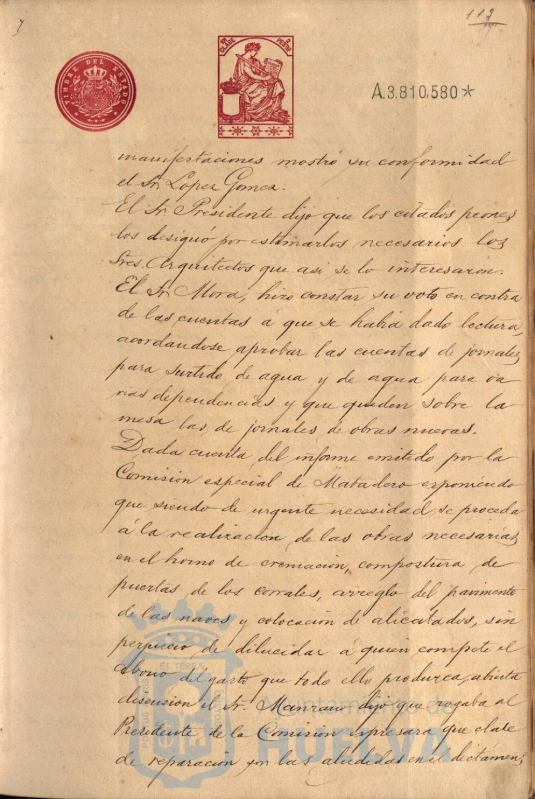 113
TIMBRE DEL ESTADO
CLASE
PESETAS
A.3.810.580*
manifestaciones mostró su conformidad
el Sr. Lopez Gomez.
El Sr. Presidente dijo que los citados peones
los designó por estimarlos necesarios los
Sres. Arquitectos que asi se lo interesaron.
El Sr. Mora, hizo constar su voto en contra
de las cuentas á que se habia dado lectura,
acordandose aprobar las cuentas de jornales
para surtido de agua y de agua para va
rias dependencias y que queden sobre la
mesa las de jornales de obras nuevas.
Dada cuenta del informe emitido por la
Comisión especial de Matadero exponiendo
que siendo de urgente necesidad se proceda
á la realizacion de las obras necesarias
en el horno de cremación, compostura de
puertas de los corrales, arreglo del pavimento
de las naves y colocacion de alicatados, sin
perjuicio de dilucidar á quien compete el
abono del gasto que todo ello produzca, abierta
discusion el Sr. Manzano dijo que rogaba al
Presidente de la Comisión espresara que clase
de reparación son las aludidas en el dictamen;
Ayuntamiento de
HUELVA